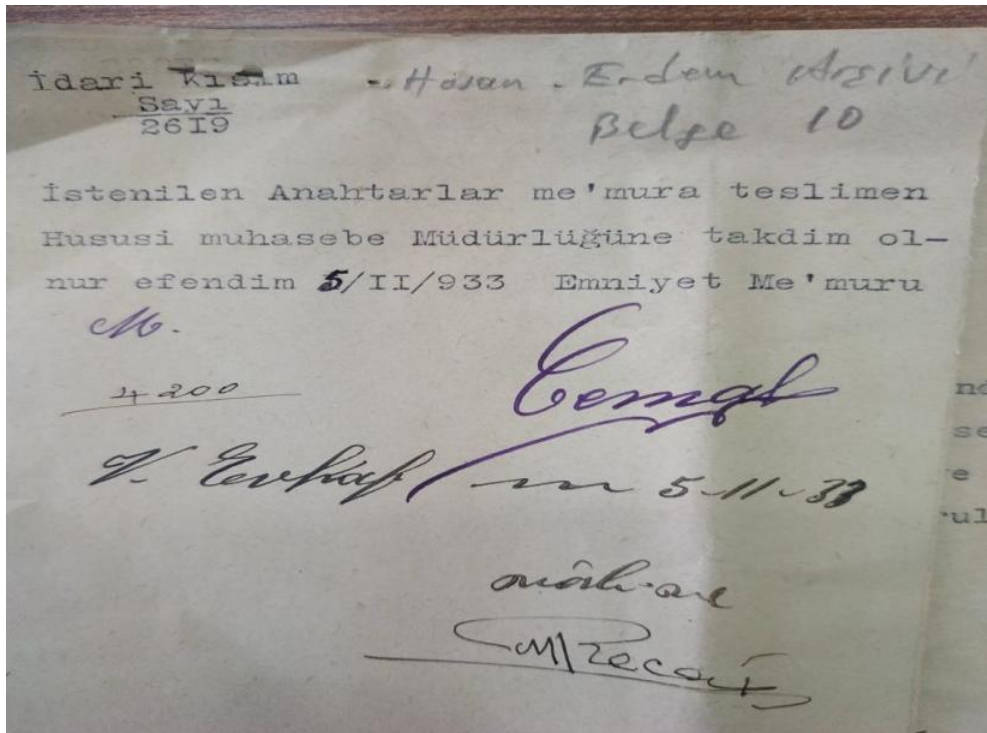 İdari Kısım
Sayı
26I9
Hasan Erdem Arşivi
Belge 10
İstenilen Anahtarlar me'mura teslimen
Hususi muhasebe Müdürlüğüne takdim ol-
nur efendim 5/II/933 Emniyet Me'muru
M.
Cemal
4200
V. Evkaf 5-11-33